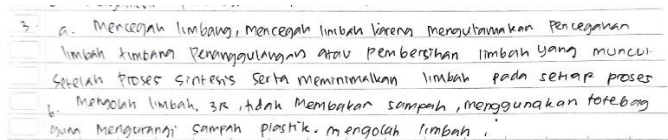 3 a. Mencegah limbang, Mencegah limbah karena mengutamakan Pencegahan
limbah timbang Penanggulangan atau Pembersihan limbah yang muncul
setelah Proses Sintesis Serta meminimalkan limbah pada setiap proses
b. Mengolah limbah. 3R, tidak Membakar sampah, menggunakan totebag
guna Mengurangi sampah plastik. mengolah limbah.